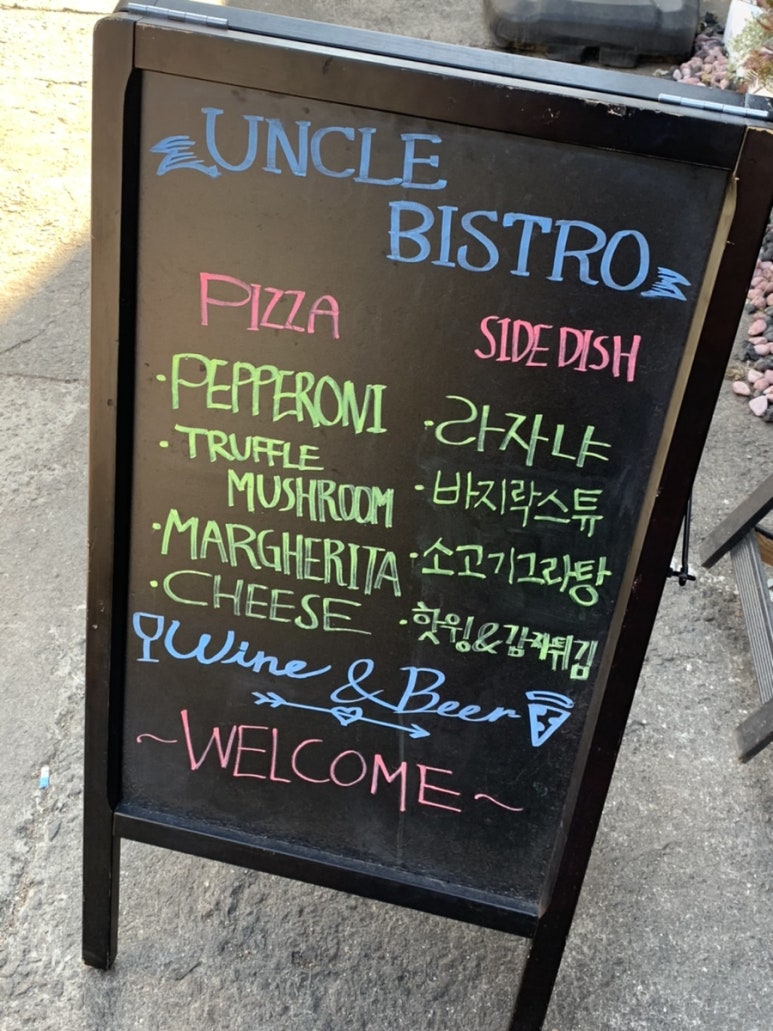 UNCLE
BISTRO
PIZZA
· PEPPERONI
· TRUFFLE
MUSHROOM
· MARGHERITA
· CHEESE
SIDE DISH
· 라자냐
· 바지락스튜
· 소고기그라탕
· 핫윙&감자튀김
Wine & Beer
~WELCOME~